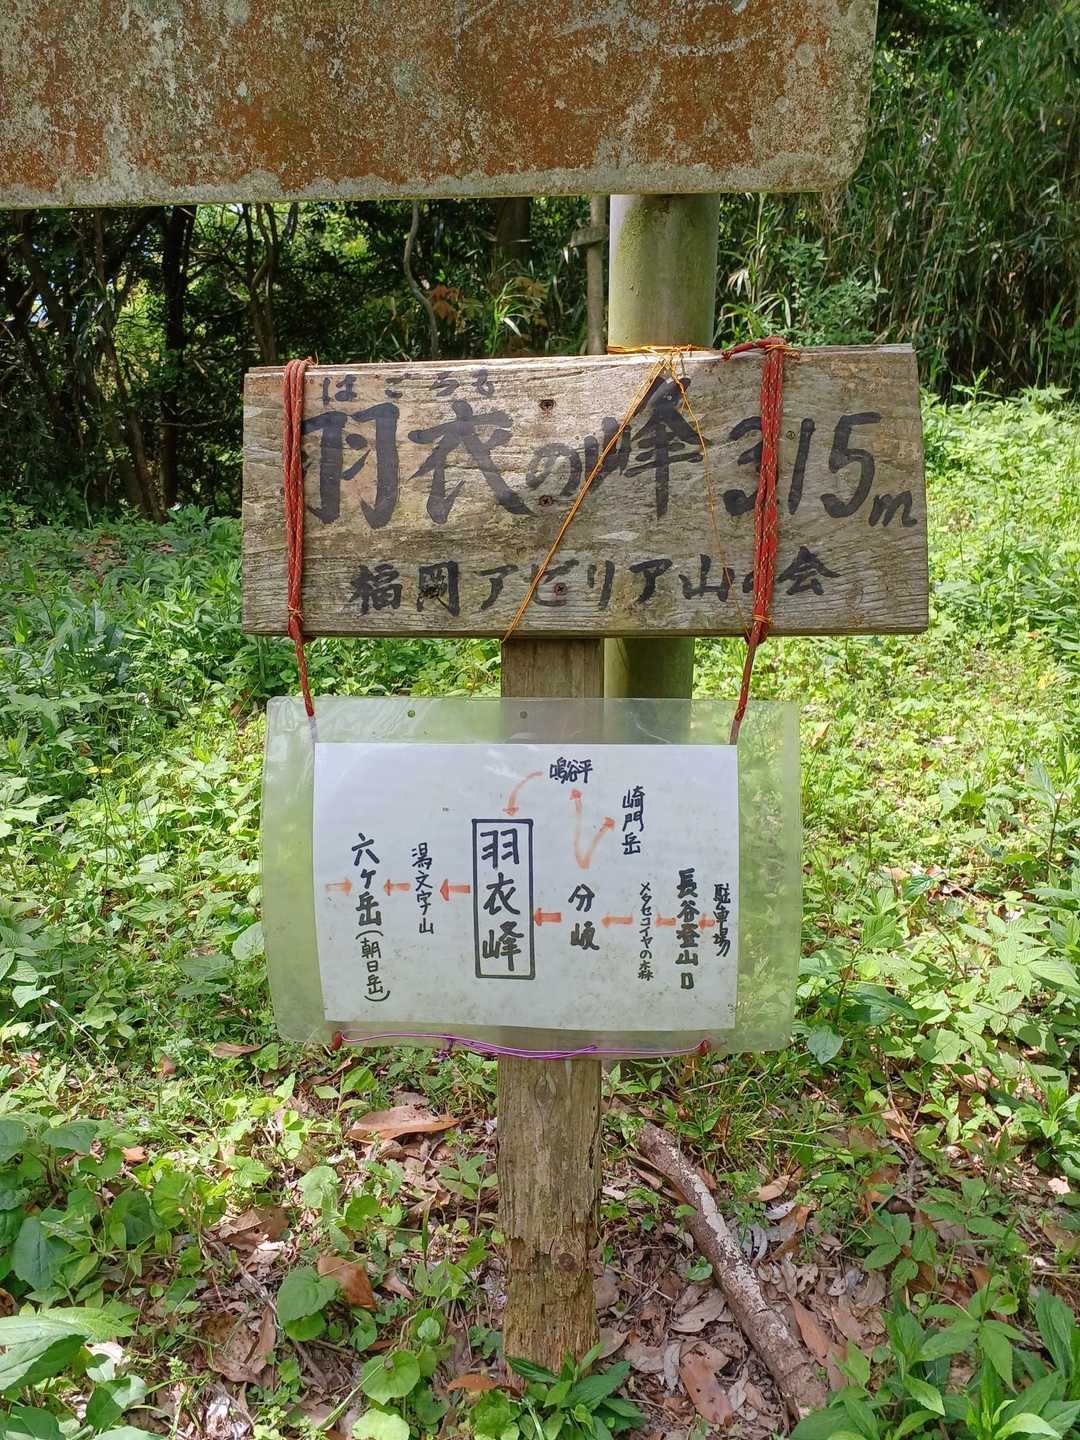 はごろも
羽衣の峰 315m
福岡アビリア山の会
鳴谷平
崎門岳
駐車場
長谷登山口
メタセコイヤの森
分岐
羽衣峰
湯文字山
六ケ岳(朝日岳)